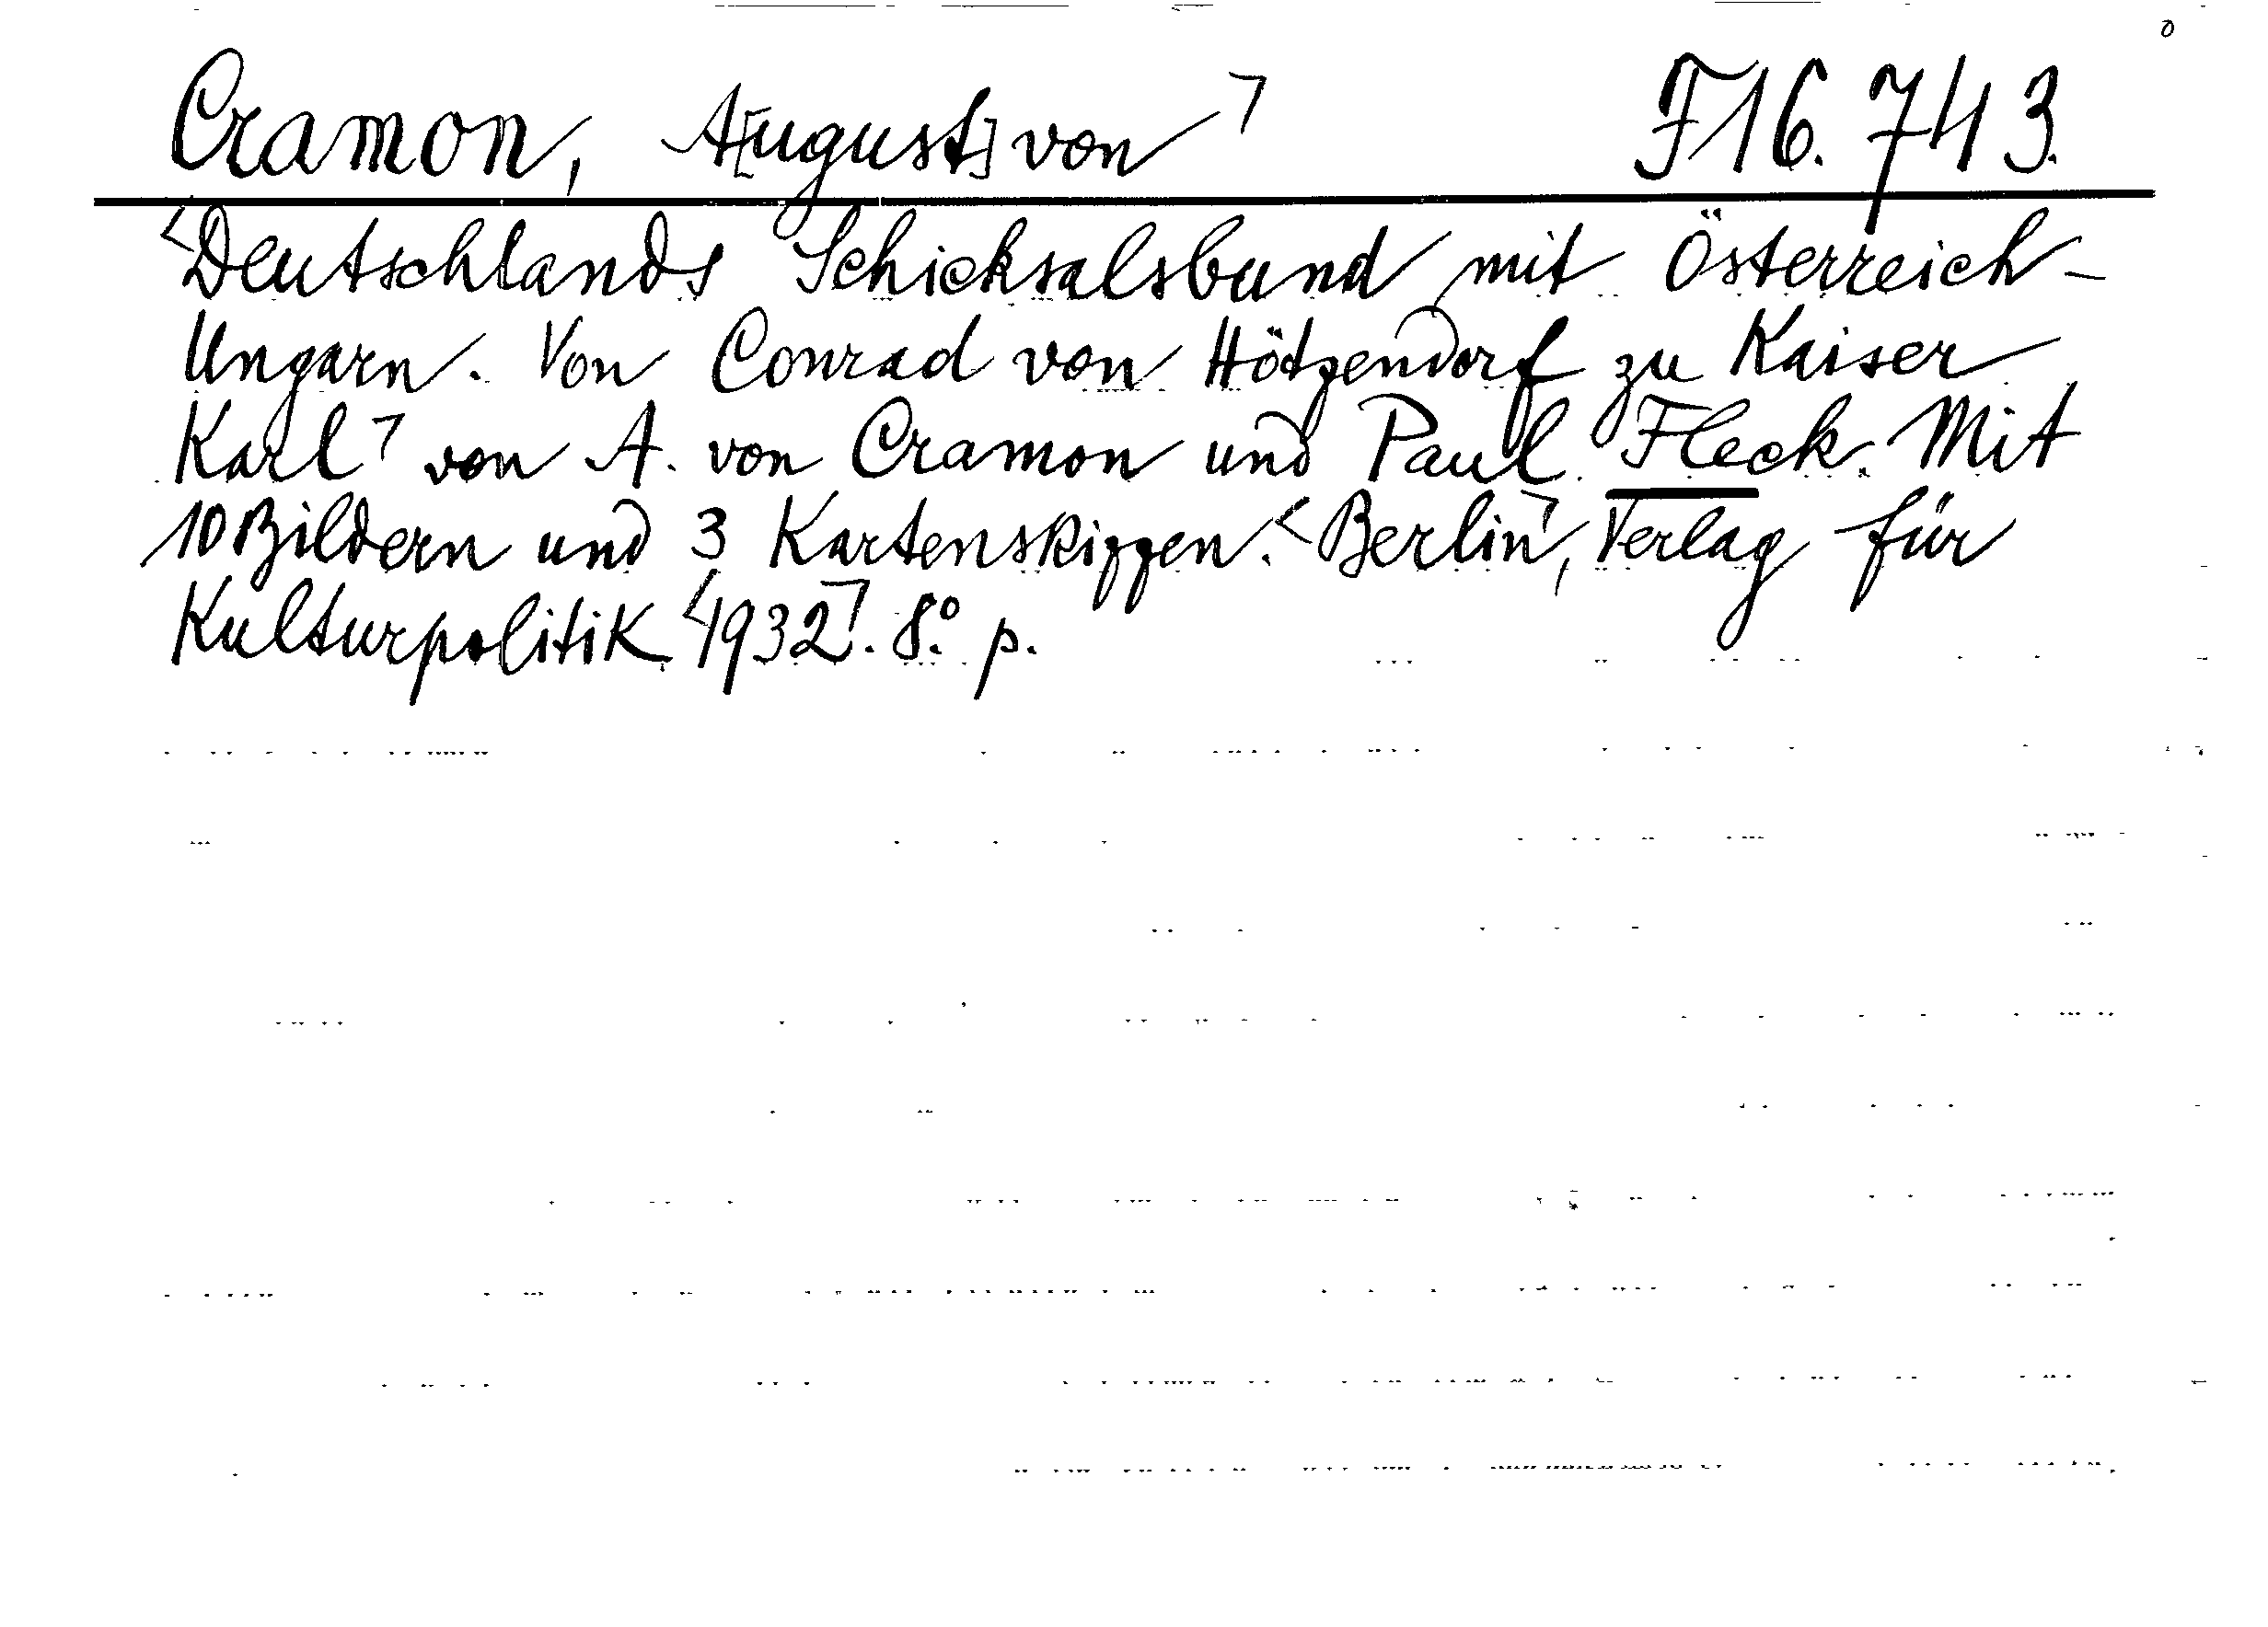 Cramon, A[ugust] von⌝ F16.743.
<Deutschlands Schicksalsbund mit Österreich-
Ungarn. Von Conrad von Hötzendorf zu Kaiser
Karl⌝ von A. von Cramon und Paul Fleck. Mit
10 Bildern und 3 Kartenskizzen. <Berlin⌝, Verlag für
Kulturpolitik <1932⌝. 8.° p.